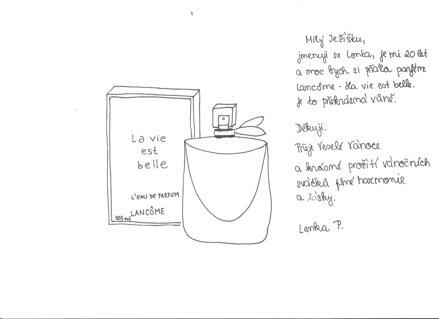 La vie
est
belle
L'EAU DE PARFUM
LANCÔME
100 ml
Milý Ježíšku,
jmenuji se Lenka, je mi 20 let
a moc bych si přála parfém
Lancôme - La vie est belle.
Je to překrásná vůně.
Děkuji.
Přeji Veselé Vánoce
a krásné prožití vánočních
svátků plné harmonie
a lásky.
Lenka P.